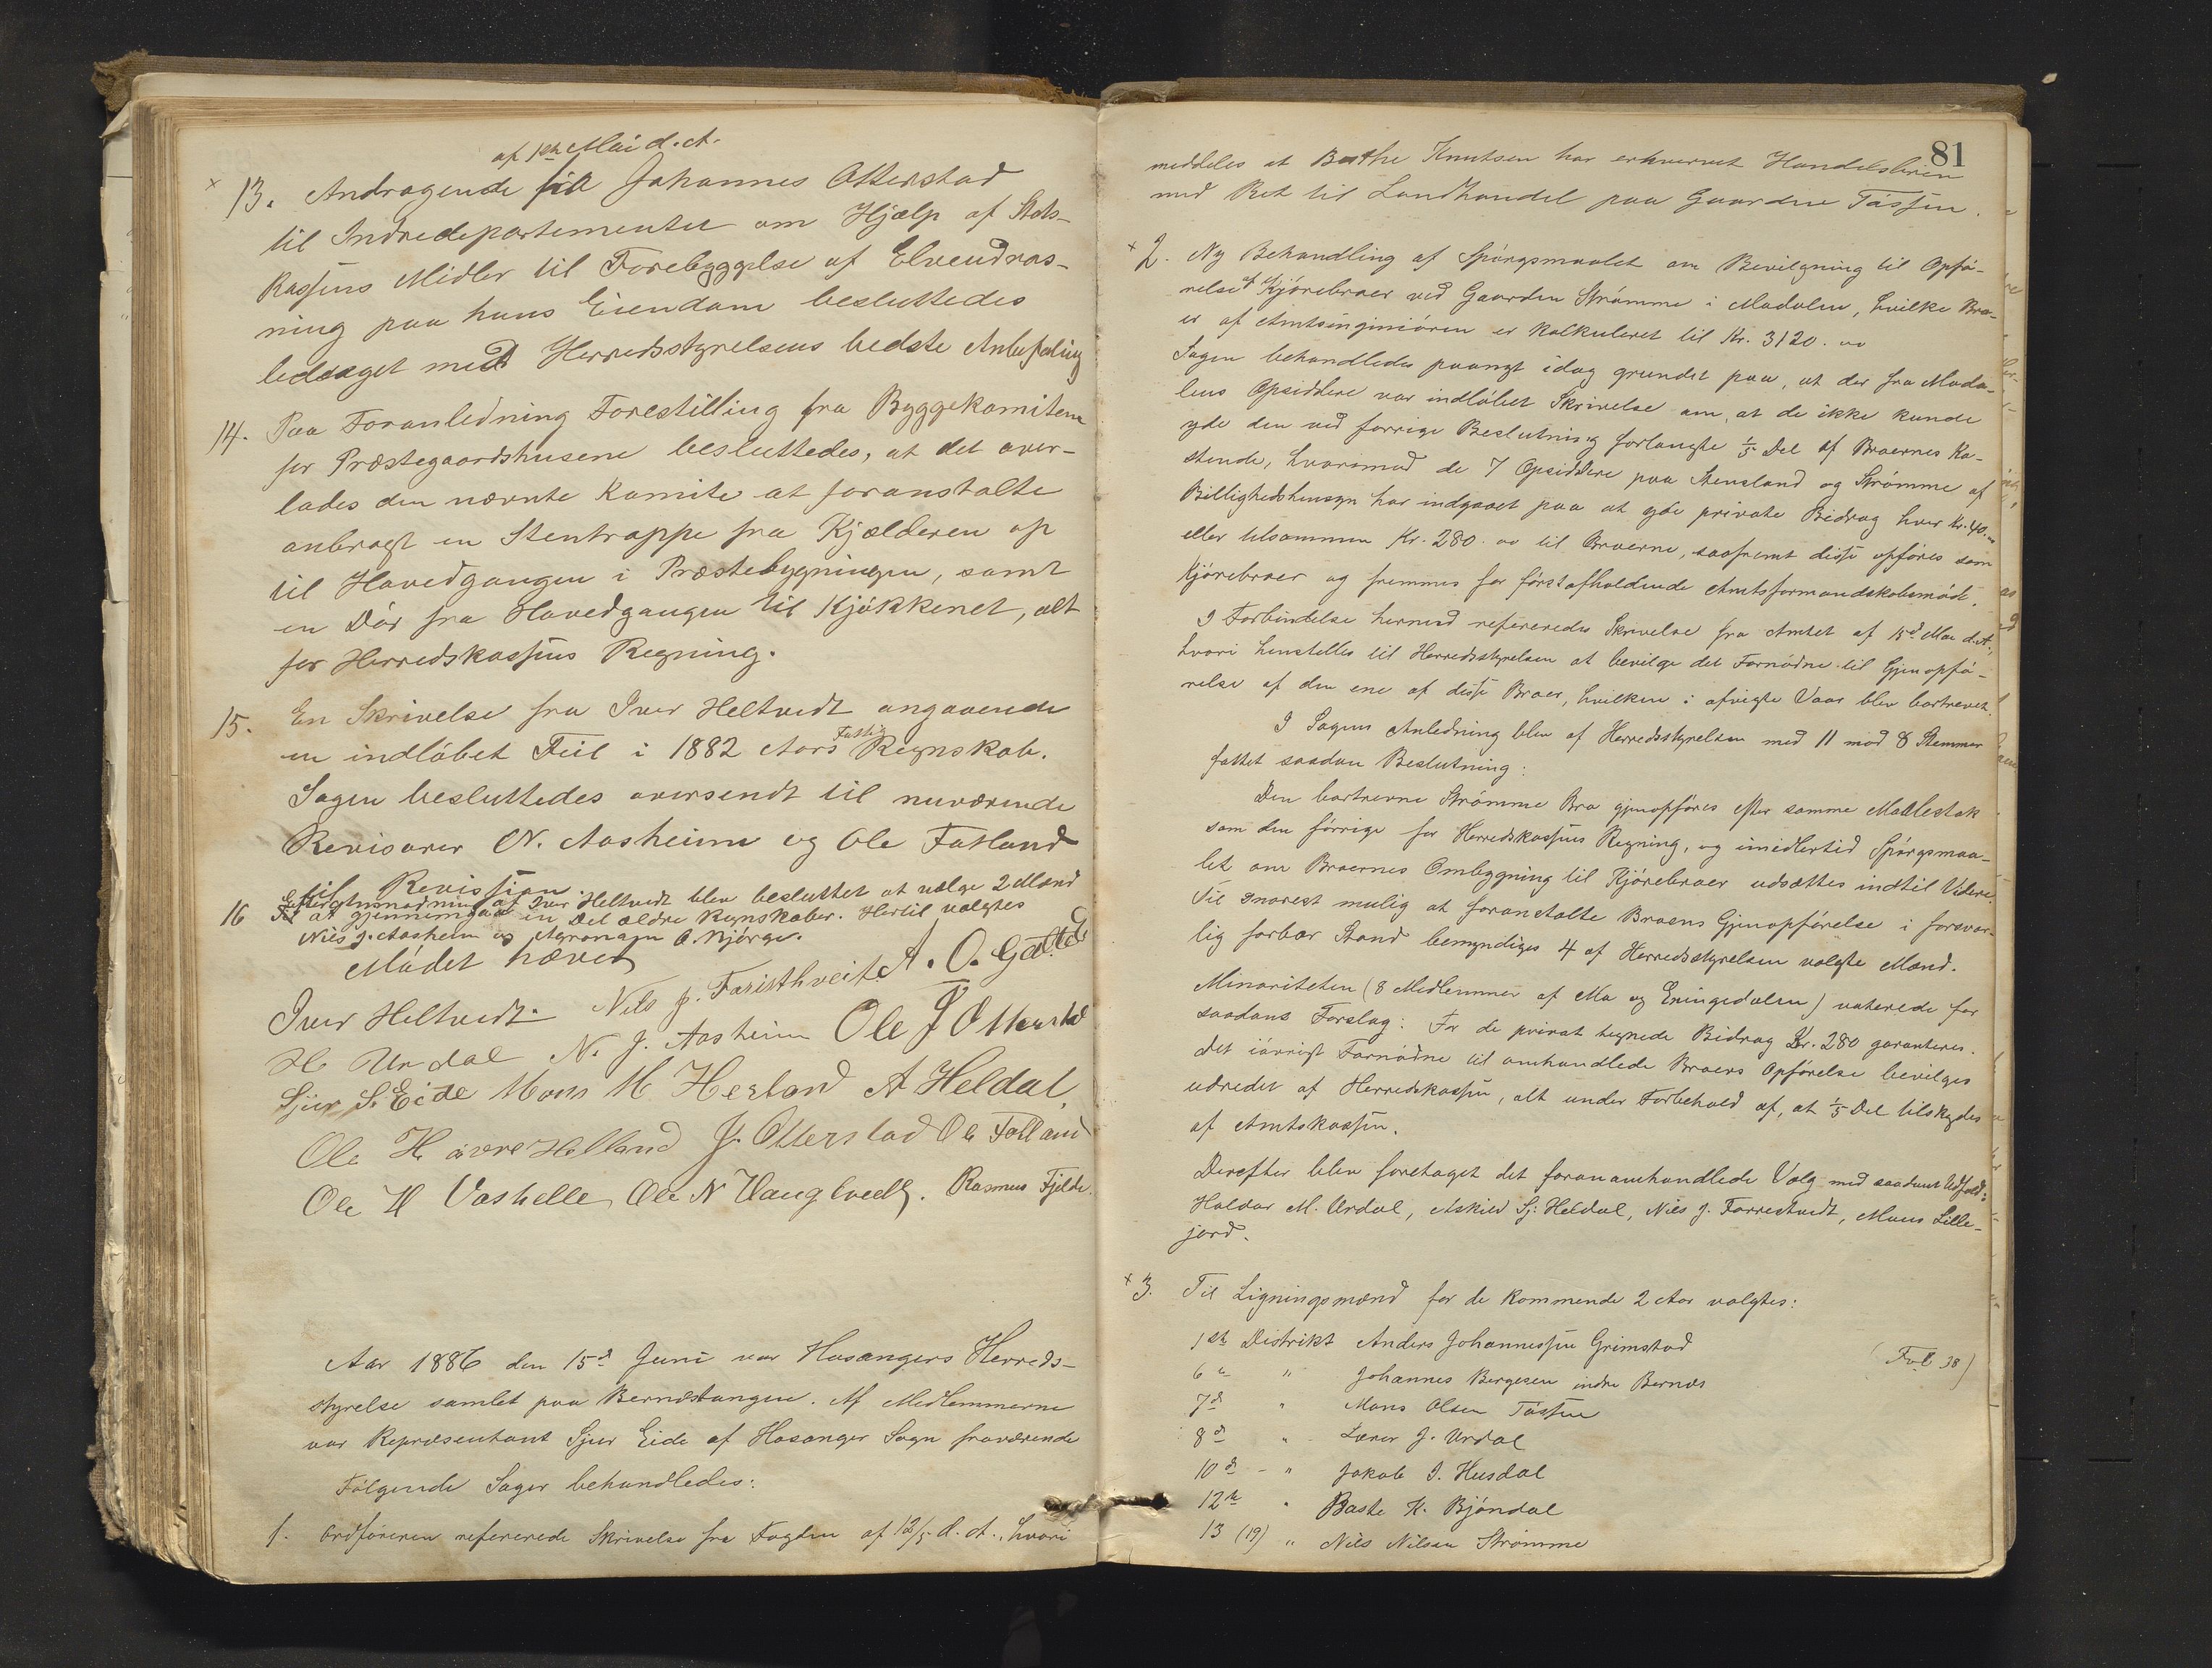 af 1ste Mai d. A.
× 13. Andragende fra Johannes Otterstad
til Indredepartementet om Hjælp af Stats-
kassens Midler til Forebyggelse af Elveudras-
ning paa hans Eiendom besluttedes
ledsaget med Herredsstyrelsens bedste Anbefaling
14. Paa Foranledning Forestilling fra Byggekomiteen
for Præstegaardshusene besluttedes, at det over-
lades den nævnte Komite at foranstalte
anbragt en Stentrappe fra Kjælderen op
til Hovedgangen i Præstebygningen, samt
en Dör fra Hovedgangen til Kjökkenet, alt
for Herredskassens Regning.
15. En Skrivelse fra Iver Heltvedt angaaende
en indlöbet Feil i 1882 Aars Fattig Regnskab.
Sagen besluttedes oversendt til nuværende
Revisorer N. Aasheim og Ole Fatland
til Revission.
16 Efter Henstilling af Iver Heltvedt blev besluttet at vælge 2 Mænd
til at gjennemgaa en Del ældre Regnskaber. Hertil valgtes
Nils J. Aasheim og Agronom O. Bjørge.
Mödet hævet
Iver Heltvedt. Nils J. Faristhveit. A. O. Gåttede
H Urdal N. J. Aasheim Ole J Otterstad
Sjur S. Eide Mons M. Herland A Heldal.
Ole H övre Helland J. Otterstad Ole Fatland
Ole H Vashelle Ole N Haugtvedt. Rasmus Fjelde.
Aar 1886 den 15de Juni var Hosangers Herreds-
styrelse samlet paa Bernestangen. Af Medlemmerne
var Repræsentant Sjur Eide af Hosanger Sogn fraværende
Følgende Sager behandledes:
1. Ordföreren refererede Skrivelse fra Fogden af 12/5 d. A., hvori
81
meddeles at Berthe Knutsen har erhvervet Handelsbrev
med Ret til Landhandel paa Gaarden Tössen.
× 2. Ny Behandling af Spörgsmaalet om Bevilgning til Opfö-
relse af Kjörebroer ved Gaarden Strömme i Modalen, hvilke Bro-
er af Amtsingeniören er kalkuleret til Kr. 3120. oo
Sagen behandledes paanyt idag grundet paa, at der fra Moda-
lens Opsiddere var indlöbet Skrivelse om, at de ikke kunde
yde den ved forrige Beslutning forlangte 1/5 Del af Broernes Ko-
stende, hvorimod de 7 Opsiddere paa Stensland og Strömme af
Billighedshensyn har indgaaet paa at yde private Bidrag hver Kr. 40. oo
eller tilsammen Kr. 280. oo til Broerne, saafremt disse opföres som
Kjörebroer og fremmes for förstafholdende Amtsformandskabsmöde.
I Forbindelse hermed refereredes Skrivelse fra Amtet af 15de Mai d. A.,
hvori henstilles til Herredsstyrelsen at bevilge det Fornödne til Gjenopfö-
relse af den ene af disse Broer, hvilken i afvigte Vaar blev bortrevet.
I Sagens Anledning blev af Herredsstyrelsen med 11 mod 8 Stemmer
fattet saadan Beslutning:
Den bortrevne Strömme Bro gjenopföres efter samme Maalestok
som den förrige for Herredskassens Regning, og imidlertid Spörgsmaa-
let om Broernes Ombygning til Kjörebroer udsættes indtil Videre.
Til snarest mulig at foranstalte Broens Gjenopförelse i forsvar-
lig farbar Stand bemyndiges 4 af Herredsstyrelsen valgte Mænd.
Minoriteten (8 Medlemmer af Mo og Eningedalen) voterede for
saadant Forslag: For de privat tegnede Bidrag Kr. 280 garanteres.
det iövrigt Fornödne til omhandlede Broers Opförelse bevilges
udredet af Herredskassen, alt under Forbehold af, at 1/5 Del tilskydes
af Amtskassen.
Derefter blev foretaget det foranomhandlede Valg med saadant Udfald:
Haldor M. Urdal, Askild Sj. Heldal, Nils J. Farrestvedt, Mons Lille-
jord.
× 3. Til Ligningsmænd for de kommende 2 Aar valgtes:
1ste Distrikt Anders Johannessen Grimstad
6te " Johannes Børgesen indre Bernes (Fol. 38)
7de " Mons Olsen Tössen
8de " Lærer J. Urdal
10de - " Jakob I. Husdal
12te " Baste K. Bjöndal
13 (19) " Nils Nilsen Strömme